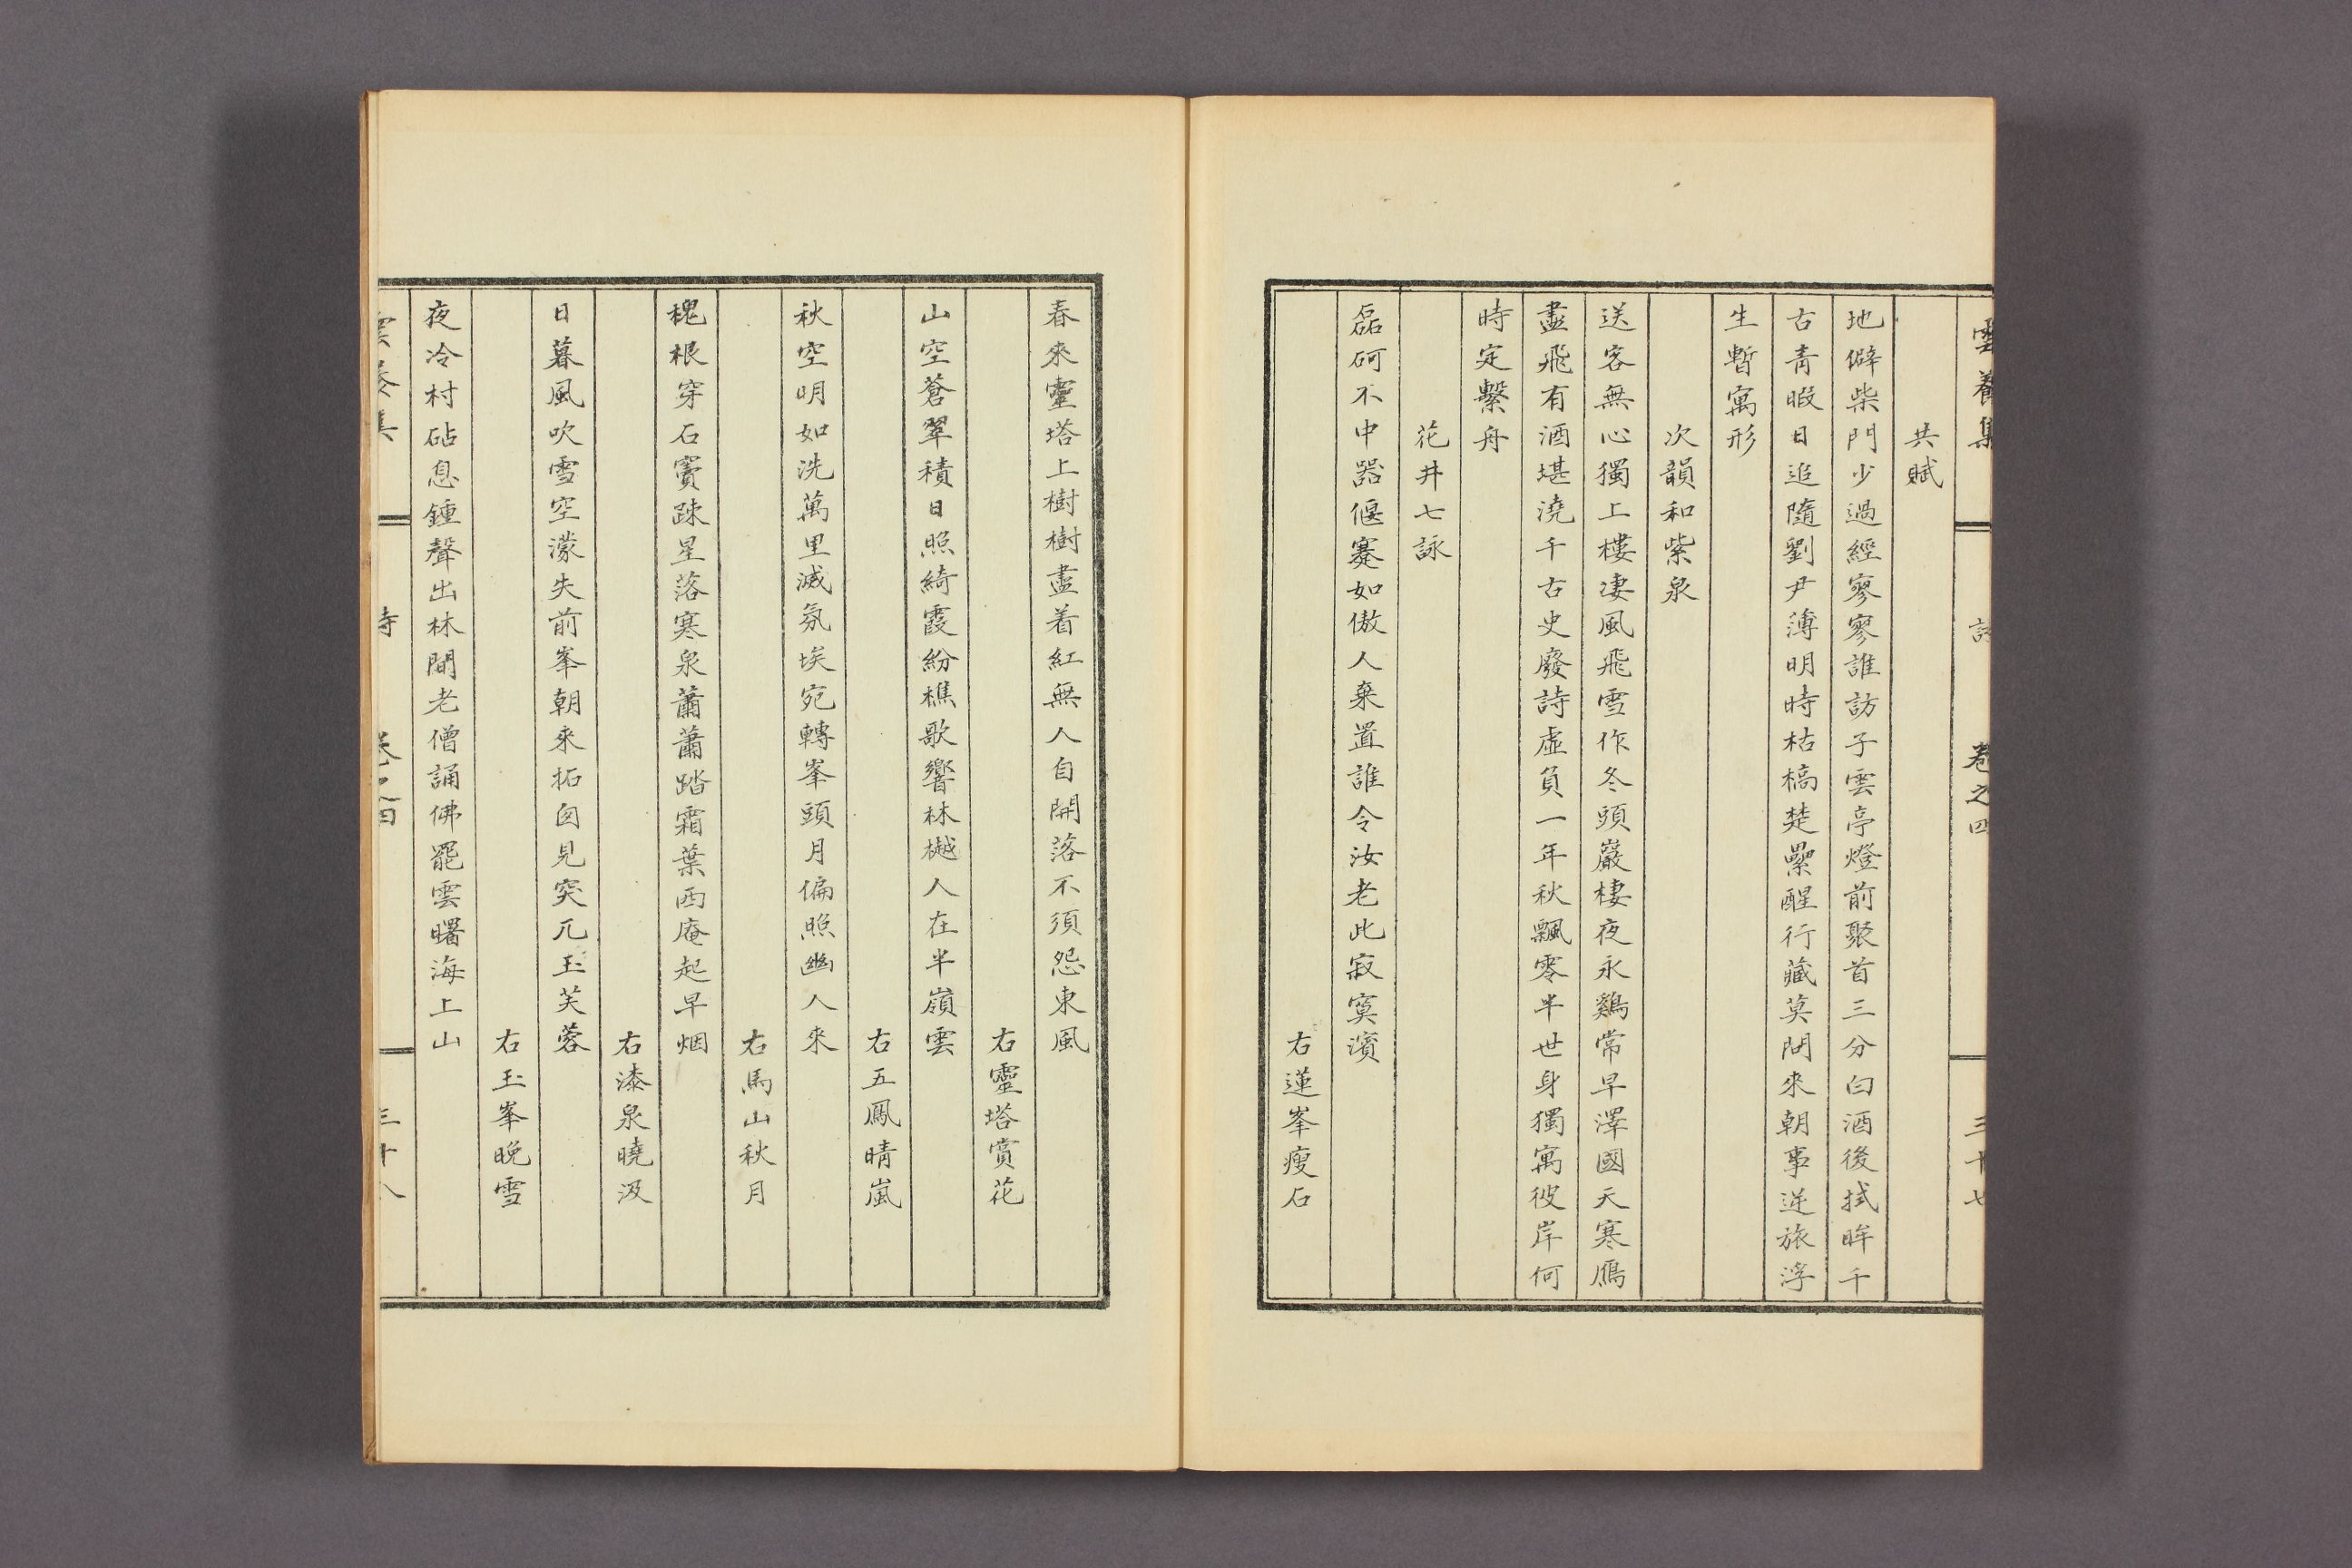 雲養集 詩 卷之四 三十七
共賦
地僻柴門少過經寥寥誰訪子雲亭燈前聚首三分白酒後拭眸千
古青暇日追隨劉尹薄明時枯槁楚纍醒行藏莫問來朝事逆旅浮
生暫寓形
次韻和紫泉
送客無心獨上樓凄風飛雪作冬頭巖棲夜永鷄常早澤國天寒鴈
盡飛有酒堪澆千古史廢詩虛負一年秋飄零半世身獨寓彼岸何
時定繫舟
花井七詠
磊砢不中器偃蹇如傲人棄置誰令汝老此寂寞濱
右蓮峯瘦石
春來靈塔上樹樹盡着紅無人自開落不須怨東風
右靈塔賞花
山空蒼翠積日照綺霞紛樵歌響林樾人在半嶺雲
右五鳳晴嵐
秋空明如洗萬里滅氛埃宛轉峯頭月偏照幽人來
右馬山秋月
槐根穿石竇踈星落寒泉蕭蕭踏霜葉西庵起早烟
右漆泉曉汲
日暮風吹雪空濛失前峯朝來拓囱見突兀玉芙蓉
右玉峯晚雪
夜冷村砧息鍾聲出林間老僧誦佛罷雲曙海上山
詩 卷之四 三十八